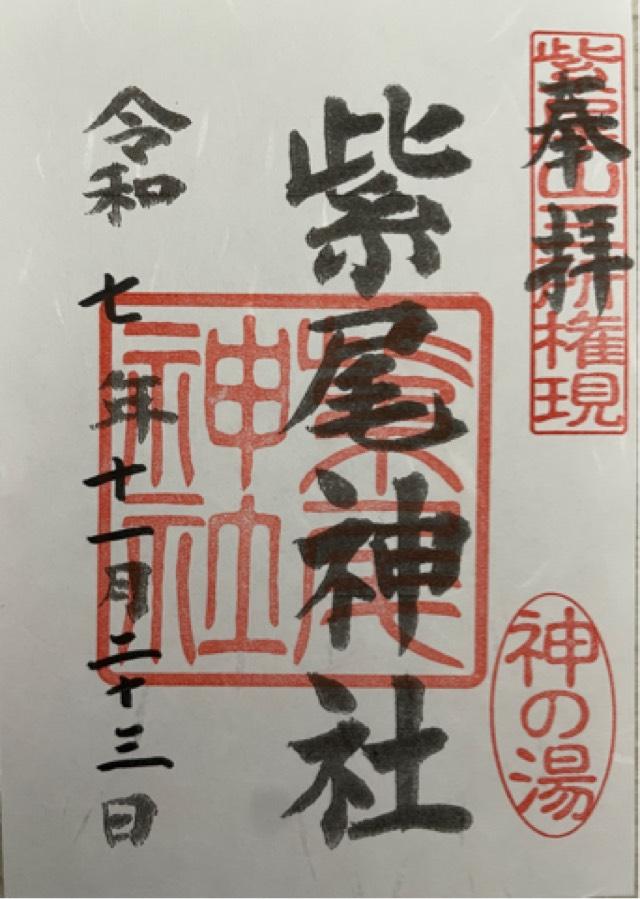 奉拝
紫尾山三所権現
神の湯
紫尾神社
紫尾神社
令和七年十一月二十三日